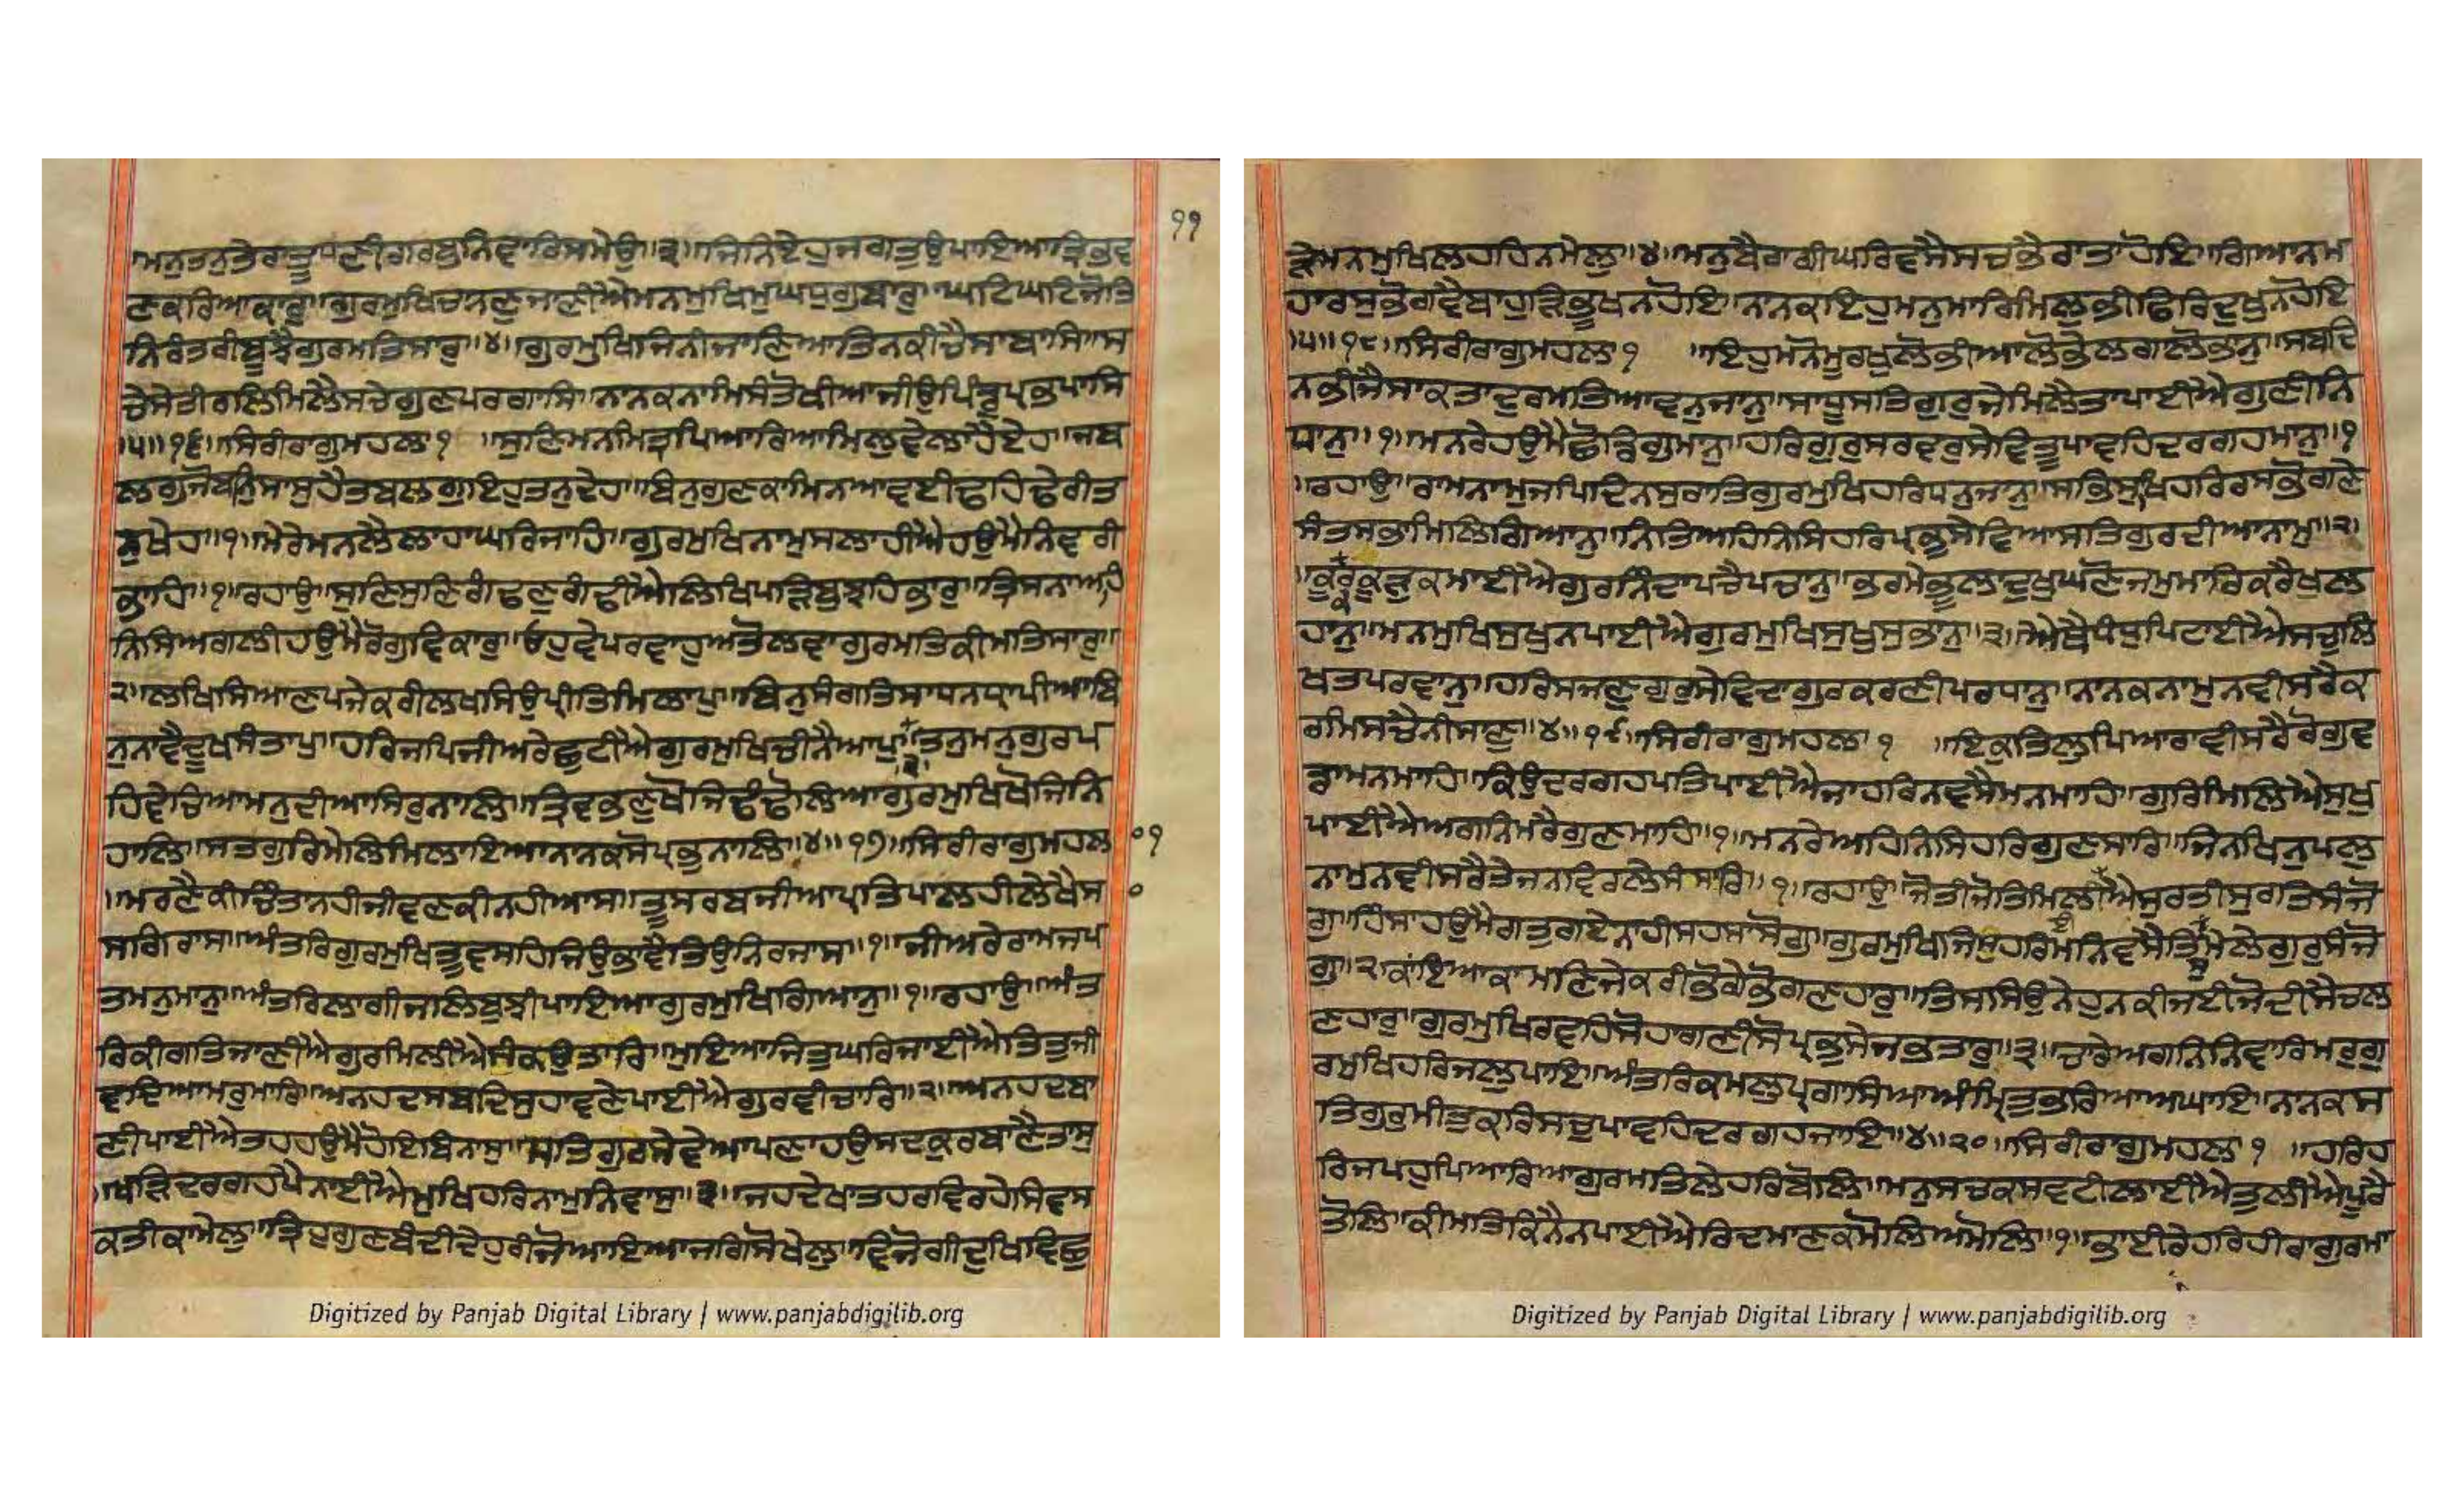 ੧੧
ਮਨੁਤਨੁਤੇਰਾਤੂਧਣੀਗਰਬੁਨਿਵਾਰਿਸਮੇਉ॥੩॥ਜਿਨਿਏਹੁਜਗਤੁਉਪਾਇਆਤ੍ਰਿਭਵ
ਣਕਰਿਆਕਾਰੁ॥ਗੁਰਮੁਖਿਚਾਨਣੁਜਾਣੀਐਮਨਮੁਖਿਮੁਘਪੁਗੁਬਾਰੁ॥ਘਟਿਘਟਿਜੋਤਿ
ਨਿਰੰਤਰੀਬੂਝੈਗੁਰਮਤਿਸਾਰੁ॥੪॥ਗੁਰਮੁਖਿਜਿਨੀਜਾਣਿਆਤਿਨਕੀਚੈਸਾਬਾਸਿ॥ਸ
ਚੇਸੇਤੀਰਲਿਮਿਲੈਸਚੇਗੁਣਪਰਗਾਸਿ॥ਨਾਨਕਨਾਮਿਸੰਤੋਖੀਆਜੀਉਪਿੰਡੁਪ੍ਰਭਪਾਸਿ
॥੫॥੧੬॥ਸਿਰੀਰਾਗੁਮਹਲਾ੧ ॥ਸੁਣਿਮਨਮਿਤ੍ਰਪਿਆਰਿਆਮਿਲੁਵੇਲਾਹੈਏਹ॥ਜਬ
ਲਗੁਜੋਬਨਿਸਾਸੁਹੈਤਬਲਗੁਇਹੁਤਨੁਦੇਹ॥ਬਿਨੁਗੁਣਕਾਮਿਨਆਵਈਢਹਿਢੇਰੀਤ
ਨੁਖੇਹ॥੧॥ਮੇਰੇਮਨਲੈਲਾਹਾਘਰਿਜਾਹਿ॥ਗੁਰਮੁਖਿਨਾਮੁਸਲਾਹੀਐਹਉਮੈਨਿਵਰੀ
ਭਾਹਿ॥੧॥ਰਹਾਉ॥ਸੁਣਿਸੁਣਿਗੰਢਣੁਗੰਢੀਐਲਿਖਿਪੜਿਬੁਝਹਿਭਾਰੁ॥ਤ੍ਰਿਸਨਾਅਹਿ
ਨਿਸਿਅਗਲੀਹਉਮੈਰੋਗੁਵਿਕਾਰੁ॥ਓਹੁਵੇਪਰਵਾਹੁਅਤੋਲਵਾਗੁਰਮਤਿਕੀਮਤਿਸਾਰੁ॥
੨॥ਲਖਿਸਿਆਣਪਜੇਕਰੀਲਖਸਿਉਪ੍ਰੀਤਿਮਿਲਾਪੁ॥ਬਿਨੁਸੰਗਤਿਸਾਧਨਧ੍ਰਾਪੀਆਬਿ
ਨੁਨਾਵੈਦੂਖਸੰਤਾਪੁ॥ਹਰਿਜਪਿਜੀਅਰੇਛੁਟੀਐਗੁਰਮੁਖਿਚੀਨੈਆਪੁ॥੩॥ਤਨੁਮਨੁਗੁਰਪ
ਹਿਵੇਚਿਆਮਨੁਦੀਆਸਿਰੁਨਾਲਿ॥ਤ੍ਰਿਭਵਣੁਖੋਜਿਢੰਢੋਲਿਆਗੁਰਮੁਖਿਖੋਜਿਨਿ
ਹਾਲਿ॥ਸਤਗੁਰਿਮੇਲਿਮਿਲਾਇਆਨਾਨਕਸੋਪ੍ਰਭੁਨਾਲਿ॥੪॥੧੭॥ਸਿਰੀਰਾਗੁਮਹਲਾ੧
॥ਮਰਣੈਕੀਚਿੰਤਾਨਹੀਜੀਵਣਕੀਨਹੀਆਸ॥ਤੂਸਰਬਜੀਆਪ੍ਰਤਿਪਾਲਹੀਲੇਖੈਸ
ਸਗਿਰਾਸ॥ਅੰਤਰਿਗੁਰਮੁਖਿਤੂਵਸਹਿਜਿਉਭਾਵੈਤਿਉਨਿਰਜਾਸ॥੧॥ਜੀਅਰੇਰਾਮਜਪ
ਤਮਨੁਮਾਨੁ॥ਅੰਤਰਿਲਾਗੀਜਲਿਬੁਝੀਪਾਇਆਗੁਰਮੁਖਿਗਿਆਨੁ॥੧॥ਰਹਾਉ॥ਅੰਤ
ਰਿਕੀਗਤਿਜਾਣੀਐਗੁਰਮਿਲੀਐਸੰਕਉਤਾਰਿ॥ਮੁਇਆਜਿਤੁਘਰਿਜਾਈਐਤਿਤੁਜੀ
ਵਦਿਆਮਰੁਮਾਰਿ॥ਅਨਹਦਸਬਦਿਸੁਹਾਵਣੇਪਾਈਐਗੁਰਵੀਚਾਰਿ॥੨॥ਅਨਹਦਬਾ
ਣੀਪਾਈਐਤਹਹਉਮੈਹੋਇਬਿਨਾਸੁ॥ਸਤਿਗੁਰਸੇਵੇਆਪਣਾਹਉਸਦਕੁਰਬਾਣੈਤਾਸੁ
॥ਖੜਿਦਰਗਹਪੈਨਾਈਐਮੁਖਿਹਰਿਨਾਮੁਨਿਵਾਸੁ॥੩॥ਜਹਦੇਖਾਤਹਰਵਿਰਹੇਸਿਵਸ
ਕਤੀਕਾਮੇਲੁ॥ਤ੍ਰਿਹੁਗੁਣਬੰਦੀਦੇਹੁਰੀਜੋਆਇਆਜਗਿਸੋਖੇਲੁ॥ਵਿਜੋਗੀਦੁਖਿਵਿਛੁ
ੜੇਮਨਮੁਖਿਲਹਹਿਨਮੇਲੁ॥੪॥ਮਨੁਬੈਰਾਗੀਘਰਿਵਸੈਸਚਭੈਰਾਤਾਹੋਇ॥ਗਿਆਨਮ
ਹਾਰਸੁਭੋਗਵੈਬਾਹੁੜਿਭੂਖਨਹੋਇ॥ਨਾਨਕਇਹੁਮਨੁਮਾਰਿਮਿਲੁਭੀਫਿਰਿਦੁਖੁਨਹੋਇ
॥੫॥੧੮॥ਸਿਰੀਰਾਗੁਮਹਲਾ੧ ॥ਇਹੁਮਨੋਮੂਰਖੁਲੋਭੀਆਲੋਭੇਲਗਾਲੋਭਾਨੁ॥ਸਬਦਿ
ਨਭੀਜੈਸਾਕਤਾਦੁਰਮਤਿਆਵਨੁਜਾਨੁ॥ਸਾਧੂਸਤਿਗੁਰੁਜੇਮਿਲੈਤਾਪਾਈਐਗੁਣੀਨਿ
ਧਾਨੁ॥੧॥ਮਨਰੇਹਉਮੈਛੋਡਿਗੁਮਾਨੁ॥ਹਰਿਗੁਰੁਸਰਵਰੁਸੇਵਿਤੂਪਾਵਹਿਦਰਗਹਮਾਨੁ॥੧
॥ਰਹਾਉ॥ਰਾਮਨਾਮੁਜਪਿਦਿਨਸੁਰਾਤਿਗੁਰਮੁਖਿਹਰਿਧਨੁਜਾਨੁ॥ਸਭਿਸੁਖਿਹਰਿਰਸਭੋਗਣੇ
ਸੰਤਸਭਾਮਿਲਿਗਿਆਨੁ॥ਨਿਤਿਅਹਿਨਿਸਿਹਰਿਪ੍ਰਭੁਸੇਵਿਆਸਤਿਗੁਰਦੀਆਨਾਮੁ॥੨॥
॥ਕੂਕਰਕੂੜੁਕਮਾਈਐਗੁਰਨਿੰਦਾਪਚੈਪਚਾਨੁ॥ਭਰਮੇਭੂਲਾਦੁਖੁਘਣੋਜਮੁਮਾਰਿਕਰੈਖੁਲ
ਹਾਨੁ॥ਮਨਮੁਖਿਸੁਖੁਨਪਾਈਐਗੁਰਮੁਖਿਸੁਖੁਸੁਭਾਨੁ॥੩॥ਐਥੈਧੰਧੁਪਿਟਾਈਐਸਚੁਲਿ
ਖਤਪਰਵਾਨੁ॥ਹਰਿਸਜਣੁਗੁਰੁਸੇਵਿਦਾਗੁਰਕਰਣੀਪਰਧਾਨੁ॥ਨਾਨਕਨਾਮੁਨਵੀਸਰੈਕ
ਰਮਿਸਚੈਨੀਸਾਣੁ॥੪॥੧੯॥ਸਿਰੀਰਾਗੁਮਹਲਾ੧ ॥ਇਕੁਤਿਲੁਪਿਆਰਾਵੀਸਰੈਰੋਗੁਵ
ਡਾਮਨਮਾਹਿ॥ਕਿਉਦਰਗਹਪਤਿਪਾਈਐਜਾਹਰਿਨਵਸੈਮਨਮਾਹਿ॥ਗੁਰਿਮਿਲਿਐਸੁਖੁ
ਪਾਈਐਅਗਨਿਮਰੈਗੁਣਮਾਹਿ॥੧॥ਮਨਰੇਅਹਿਨਿਸਿਹਰਿਗੁਣਸਾਰਿ॥ਜਿਨਖਿਨੁਪਲੁ
ਨਾਮੁਨਵੀਸਰੈਤੇਜਨਵਿਰਲੇਸੰਸਾਰਿ॥੧॥ਰਹਾਉ॥ਜੋਤੀਜੋਤਿਮਿਲਾਈਐਸੁਰਤੀਸੁਰਤਿਸੰਜੋ
ਗੁ॥ਹਿੰਸਾਹਉਮੈਗਤੁਗਏਨਾਹੀਸਹਸਾਸੋਗੁ॥ਗੁਰਮੁਖਿਜਿਸੁਹਰਿਮਨਿਵਸੈਤਿਸੁਮੇਲੇਗੁਰੁਸੰਜੋ
ਗੁ॥੨॥ਕਾਇਆਕਾਮਣਿਜੇਕਰੀਭੋਗੇਭੋਗਣਹਾਰੁ॥ਤਿਸਸਿਉਨੇਹੁਨਕੀਜਈਜੋਦੀਸੈਚਲ
ਣਹਾਰੁ॥ਗੁਰਮੁਖਿਰਵਹਿਸੋਹਾਗਣੀਸੋਪ੍ਰਭੁਸੇਜਭਤਾਰੁ॥੩॥ਚਾਰੇਅਗਨਿਨਿਵਾਰਿਮਰੁਗੁ
ਰਮੁਖਿਹਰਿਜਲੁਪਾਇ॥ਅੰਤਰਿਕਮਲੁਪ੍ਰਗਾਸਿਆਅੰਮ੍ਰਿਤੁਭਰਿਆਅਘਾਇ॥ਨਾਨਕਸ
ਤਿਗੁਰੁਮੀਤੁਕਰਿਸਚੁਪਾਵਹਿਦਰਗਹਜਾਇ॥੪॥੨੦॥ਸਿਰੀਰਾਗੁਮਹਲਾ੧ ॥ਹਰਿਹ
ਰਿਜਪਹੁਪਿਆਰਿਆਗੁਰਮਤਿਲੇਹਰਿਬੋਲਿ॥ਮਨੁਸਚਕਸਵਟੀਲਾਈਐਤੁਲੀਐਪੂਰੈ
ਤੋਲਿ॥ਕੀਮਤਿਕਿਨੈਨਪਾਈਐਰਿਦਮਾਣਕਮੋਲਿਅਮੋਲਿ॥੧॥ਭਾਈਰੇਹਰਿਹੀਰਾਗੁਰਮਾ
Digitized by Panjab Digital Library | www.panjabdigilib.org
Digitized by Panjab Digital Library | www.panjabdigilib.org